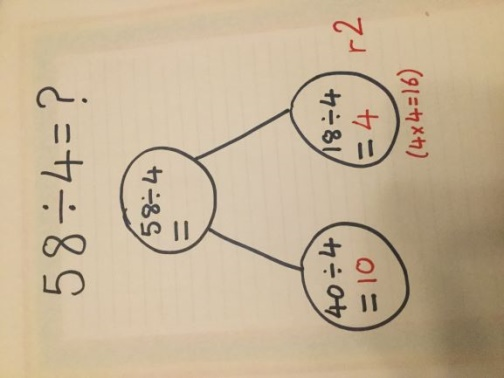 58÷4=?
58÷4
=
40÷4
=10
18÷4
=4 r2
(4×4=16)